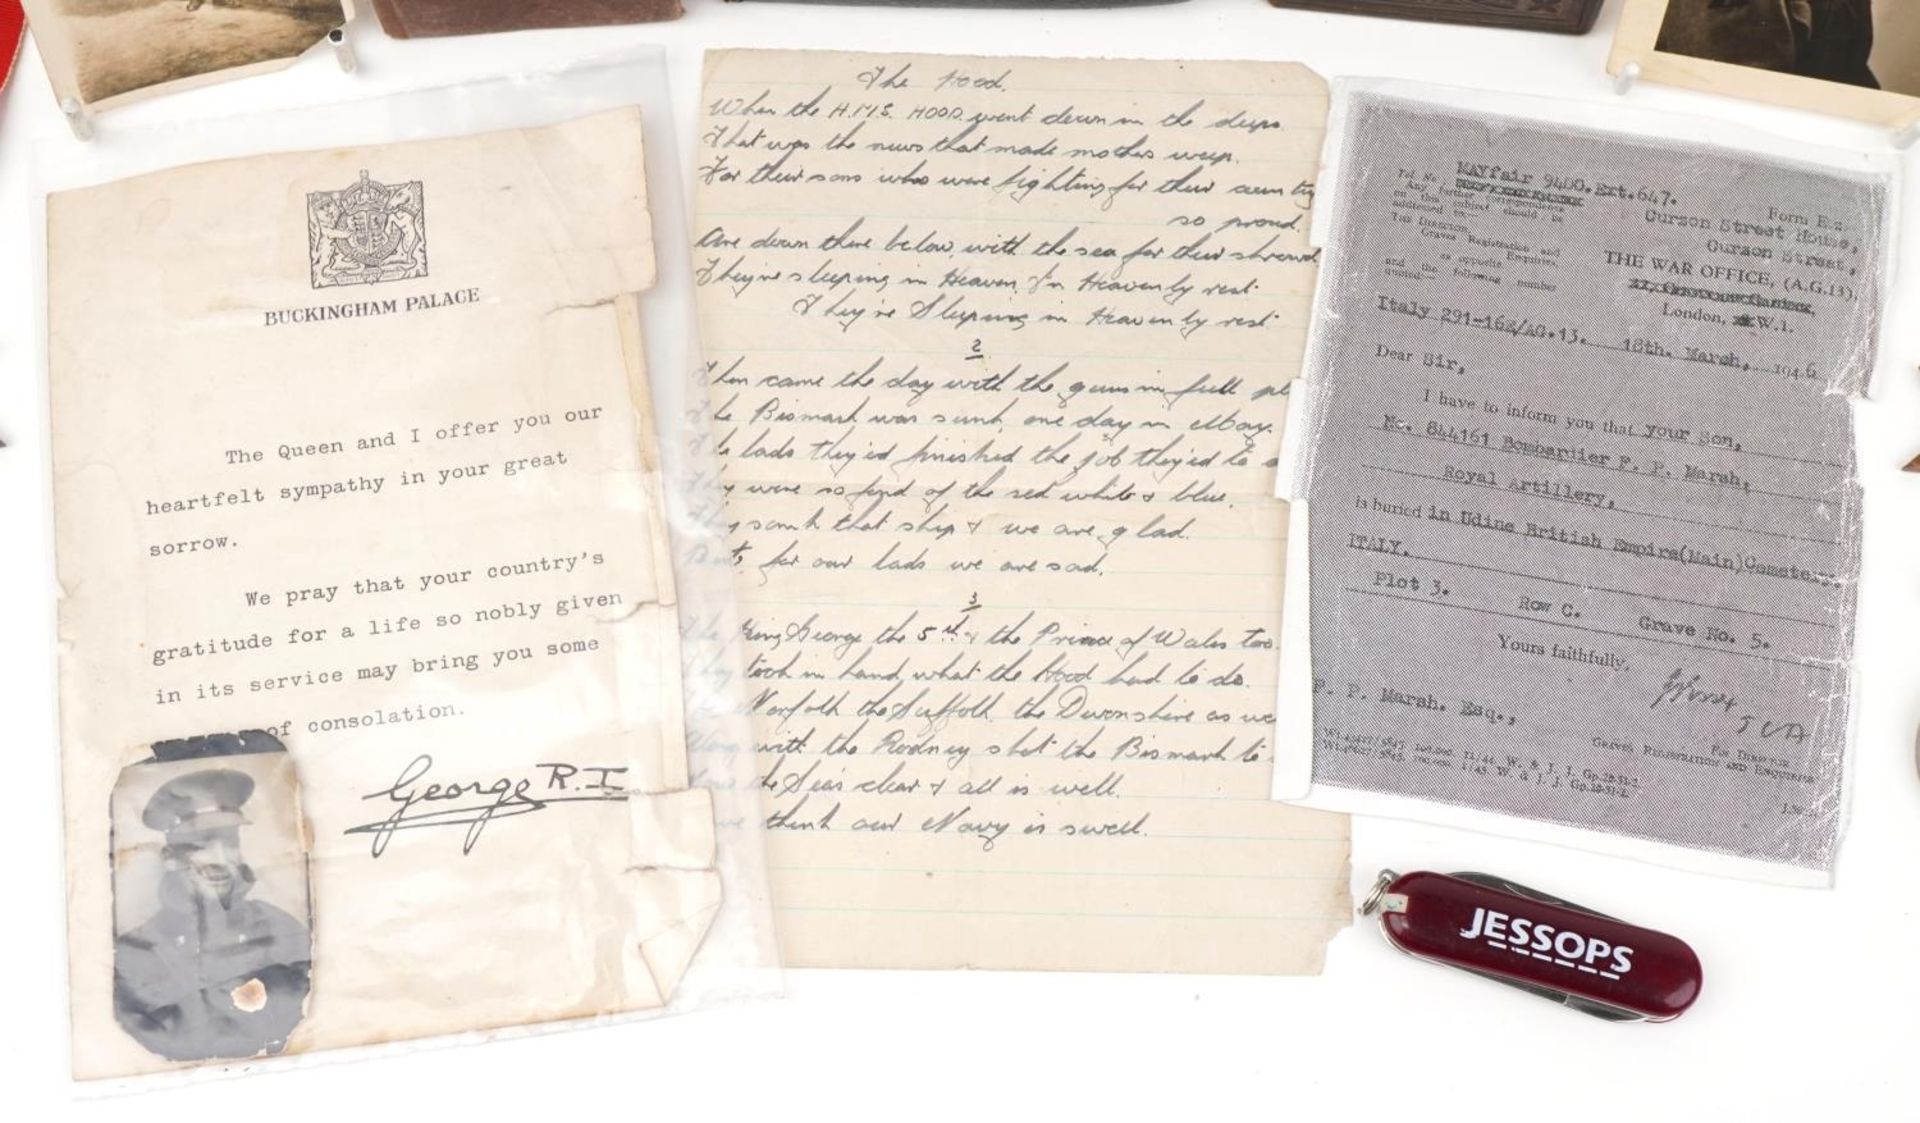 BUCKINGHAM PALACE
The Queen and I offer you our
heartfelt sympathy in your great
sorrow.
We pray that your country's
gratitude for a life so nobly given
in its service may bring you some
of consolation.
George R.I
The Hood.
When the H.M.S. HOOD. went down in the deeps.
That was the news that made mothers weep.
For their sons who were fighting for their country
so proud.
Are down there below, with the sea for their shroud
They're sleeping in Heaven, In Heavenly rest
They're Sleeping in Heavenly rest
2
Then came the day with the guns in full
The Bismark was sunk, one day in May.
lads they'ed finished the job they'ed to
They were so fond of the red white & blue.
They sunk that ship & we are glad.
But, for our lads we are sad.
3
The King George the 5th & the Prince of Wales too.
They took in hand what the Hood had to do.
Norfolk the Suffolk the Devonshire as we
Along with the Rodney shot the Bismark to
the Sea's clear & all is well.
we think our Navy is swell.
MAYfair 9400.Ext.647.
Tel. No.
Any further correspondence
on this subject should be
addressed to:—
THE DIRECTOR,
Graves Registration and
Enquiries,
as opposite
and the following number
quoted:—
Form E.2.
Curzon Street House,
Curzon Street,
THE WAR OFFICE, (A.G.13),
London, W.1.
Italy 291-16E/AG.13. 18th. March, 1946
Dear Sir,
I have to inform you that your Son,
No. 844161 Bombardier F. P. Marsh,
Royal Artillery,
is buried in Udine British Empire(Main)Cemetery,
ITALY.
Plot 3. Row C. Grave No. 5.
Yours faithfully,
F. P. Marsh. Esq.,
FOR DIRECTOR
GRAVES REGISTRATION AND ENQUIRIES
JESSOPS